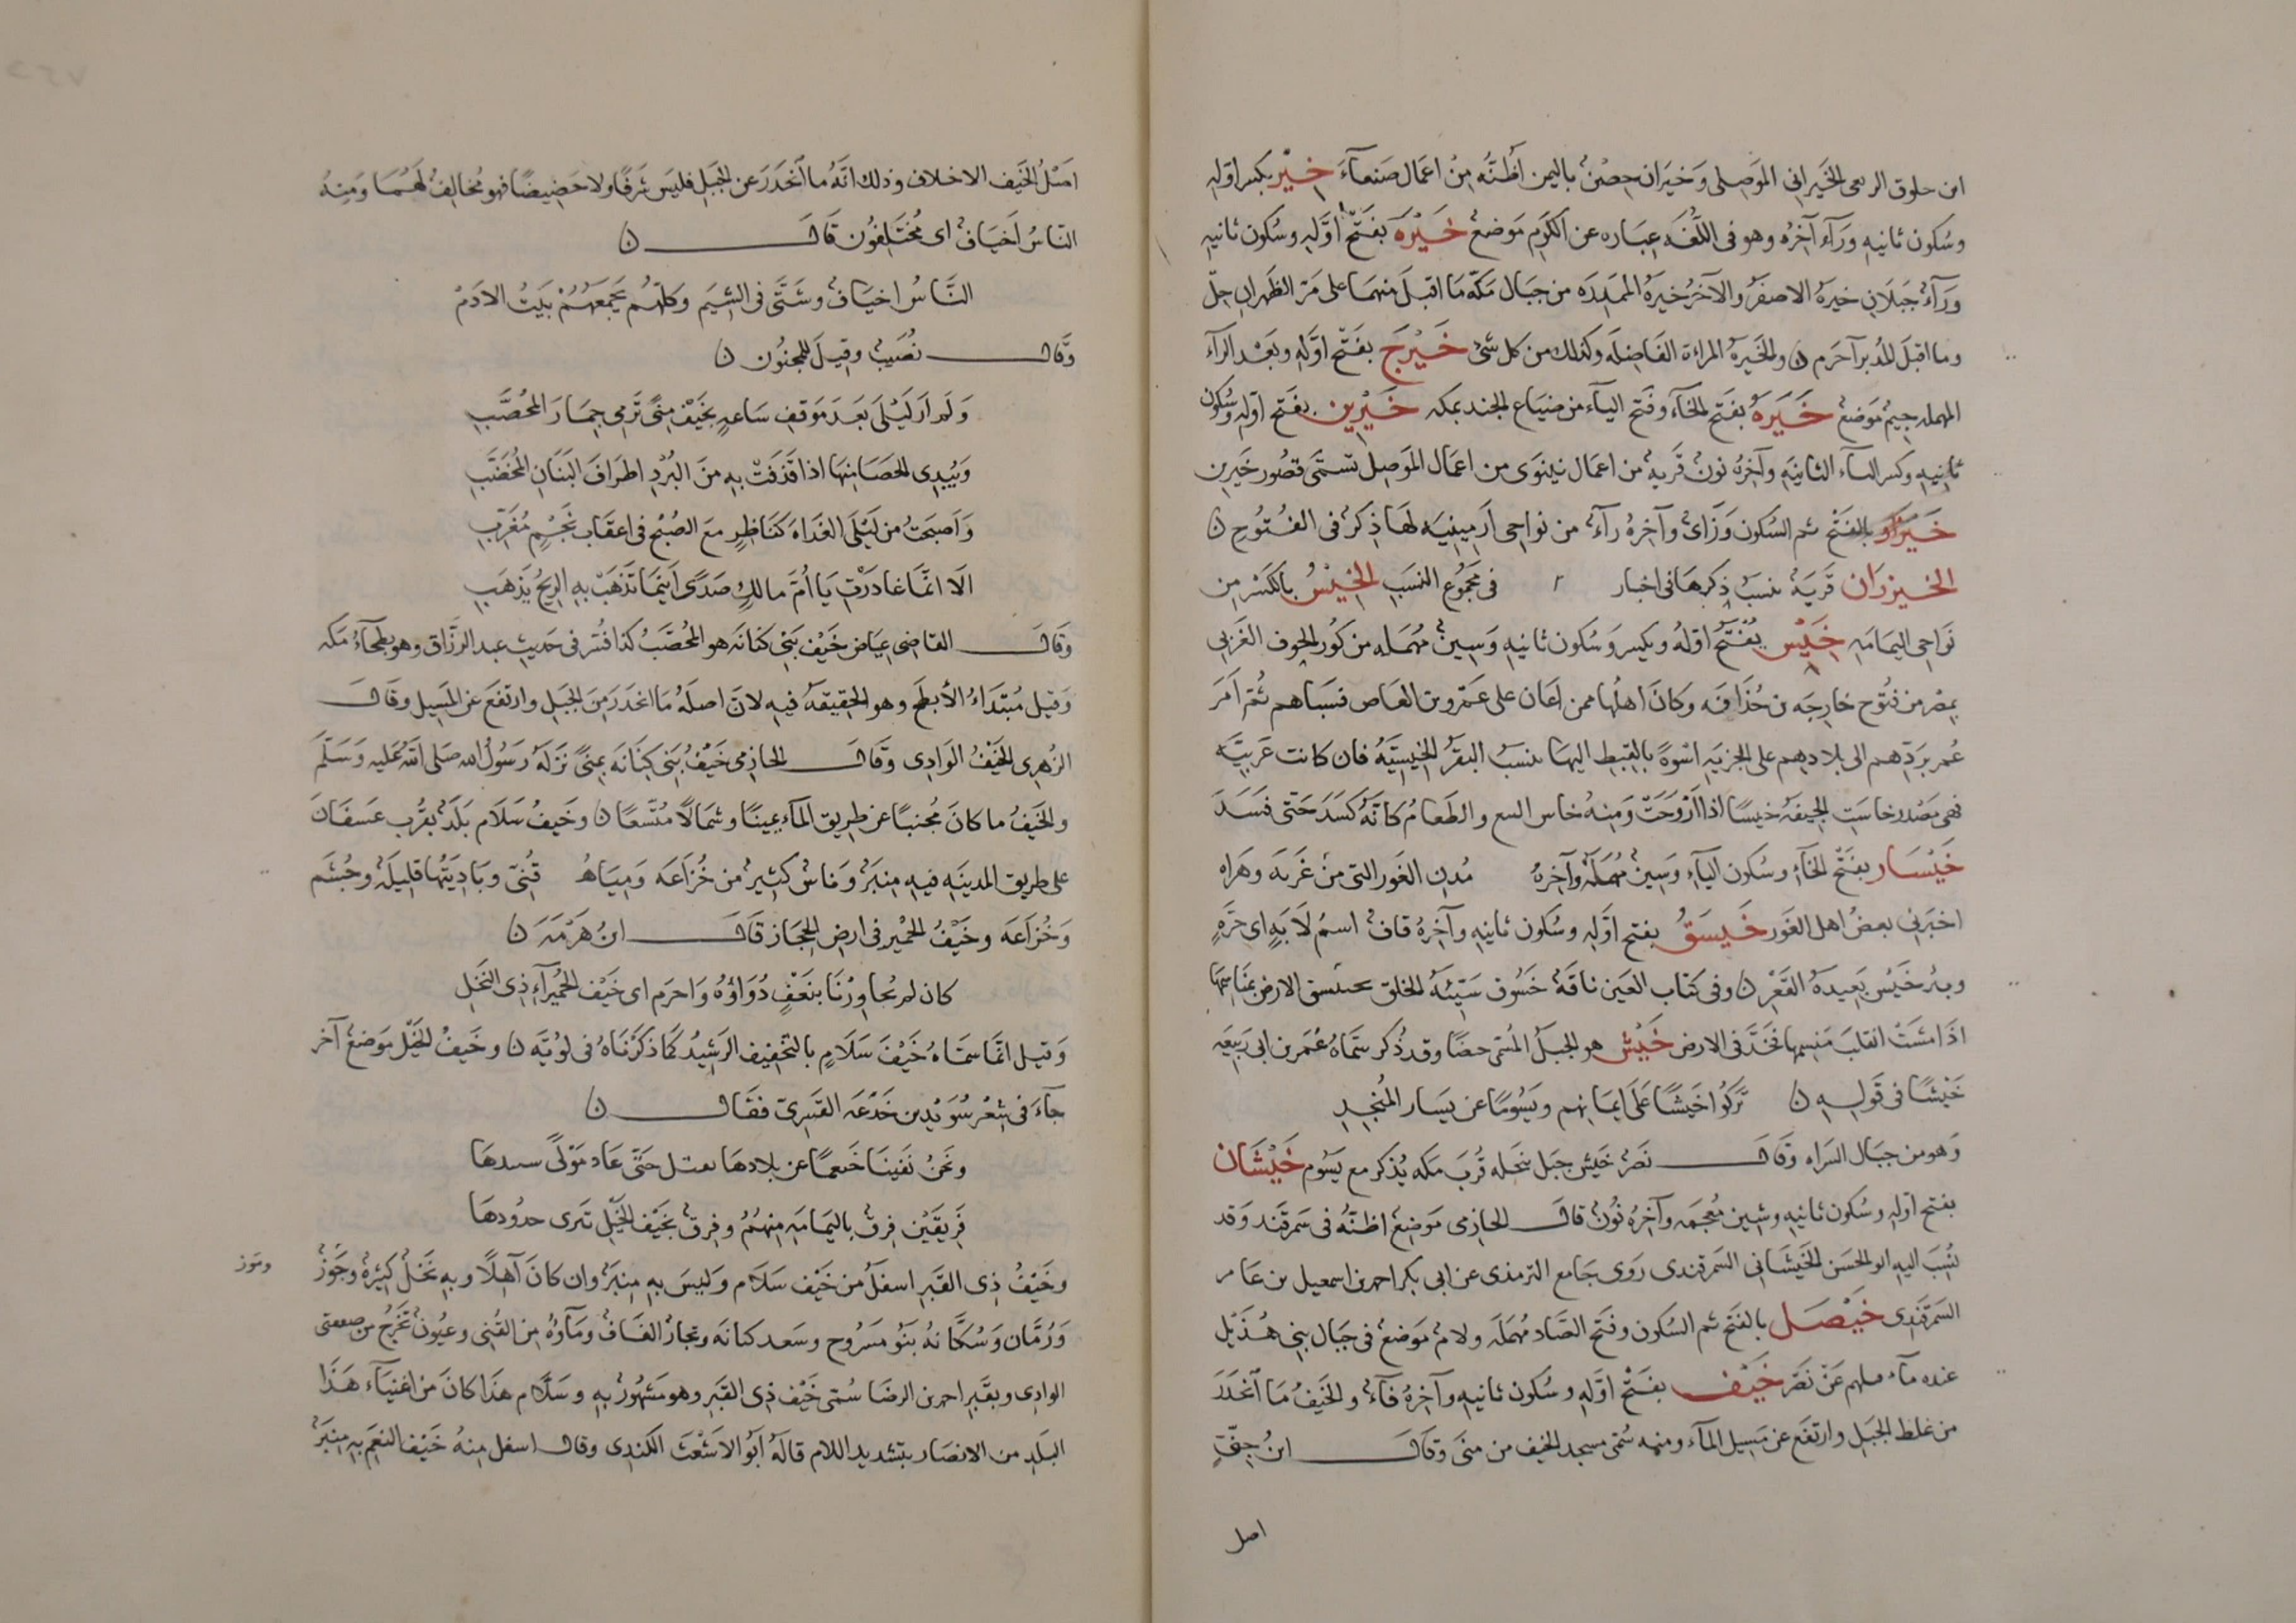 ابن حلوق الربعى الخَيرانى الموَصِلى وَخيَران حِصْنٌ باليمن اظُنُّه مِنْ اعمَال صَنعآءَ خِيْر بكسر اوّلهِ
وسُكون ثانيهِ ورَآء آخرُه وهو فى اللُّغَه عِبَاره عن الكَرَم مَوضعٌ خَيْرَه بفَتْح اوَّلهِ وسُكون ثانيهِ
وَرَآءٌ جَبَلانِ خيرَهُ الاصفَرُ والآخرُ خيرَهُ المَمدَرَه من جبَال مَكّه مَا اقبَلَ منهمَا على مَرّ الظَهران حِلّ
وما اقبَلَ للمُدبر آحَرم ن والخَيرهُ المراءة الفَاضِله وكذلك من كل شئ خَيْرَج بفَتْح اوّلهِ وبَعْد الرآء
المهمله جيمٌ مَوضعٌ خَيَرَهُ بفَتح الخآء وفَتح اليَآء من ضيَاع الجند بمكه خَيْرِين بفَتح اوّلهِ وسُكون
ثانِيهِ وكسر الرآء الثانيَه وآخرُه نونٌ قَريهٌ من اعمَال نينوَى من اعمَال المَوصِل تسمّى قصُور خَيرين
خَيْزَار بالفَتْح ثم السُكون وَزَاىٌ وآخرُه رآءٌ من نواحى ارَمِينيَه لهَا ذِكرٌ فى الفُتوُحِ ن
الخَيزرَان قَريَهٌ ينسَبُ ذِكرهَا فى اخبار فى مجَموُع النسَبِ الخِيْسُ بالكسْر مِن
نَوَاحى اليمَامَه خَيْس يُفْتَحُ اوّلهُ ويكسر وَسُكون ثانيهِ وَسِينٌ مُهمَله من كُوَر الحوف الغَربى
بِمصْر من فتُوْح خارجَه بن حُذَافَه وكَانَ اهلُها ممن اعَان على عَمَرو بن العَاص فسَبَاهم ثُمّ اَمَرَ
عُمر بردّهم الى بلادهِم على الجزيَه اسْوةً بالقِبطِ اليهَا ينسبُ البَقرُ الخِيسيَّهُ فان كانت عَربيَّه
فهى مَصْدر خاسَتِ الجيفَه خيسًا اذا اَرْوَحَتْ وَمِنهُ خاس البيع والطَعامُ كانَّهُ كَسَدَ حَتّى فسَدَ
خَيْسَار بفَتح الخآءِ وسُكون اليآءِ وَسِينٌ مُهمَلَهٌ وآخرهُ مُدن الغَور التى منْ غَربَه وهَراه
اخبَرنى بعضُ اهل الغَور خَيسَقُ بفتح اوّلهِ وسُكون ثانيهِ وآخِرهُ قافٌ اسمُ لاَبَهٍ اى حَرّهٍ
وبئرخَيْسَق بَعيدَهُ القَعْر ن وفى كتاب العَين ناقَةٌ خَسُوف سَيّئَهُ الخلق الارضَ بمنَاسمِهَا
اذَا مَشَتْ انقلبَ مَنسِمها فخَدَّ فى الارض خَيْش هو الجبلُ المُسَمى حضًا وقد ذُكر سَمّاهُ عُمر بن ابى رَبيعَه
خَيْشًا فى قَولهِ ن تَركُوا خَيشًا عَلَى ايمَانِهم ويَسُومًا عن يَسَار المُنْجِدِ
وَهو من جبَال السَراه وقَال نَصَرٌ خَيش جبَل بنَخله قُربَ مَكه يُذكر مع يَسُوم خَيْشَان
بفتح اوّلهِ وسُكون ثانيهِ وشِين مُعجمَه وآخِرهُ نُونٌ قال الحازِمى مَوَضِعٌ اظنُّه فى سَمرقَند وَقد
نُسِبَ اليه ابو الحَسَن الخَيشَانى السَمرقندى رَوَى جَامع الترمذى عن ابى بكر احمد بن اسمعيل بن عَامر
السَمرقَندِى خَيْصَل بالفتح ثم السُكون وفتح الصَاد مُهمَلَه ولامٌ مَوضعٌ فى جبَال بنى هُذَيْل
عنده مآء عَنْ نَصَر خَيْف بفَتْح اوّلهِ وسُكون ثانيهِ وآخِرهُ فآءٌ والخَيفُ مَا انْحَدَرَ
من غلظ الجبَلِ وارتفَع عن مَسِيل المآء ومنه سُمّى مسجد الخيف من منىَ وقَال ابنُ جِنّى
اصل
اصْلُ الخَيف الاخلاف وذلك انَّهُ ما انْحَدرَ عن الجبَل فليسَ شرفًا ولا حَضِيضًا فهو مُخالِفٌ لهَمُا وَمِنهُ
النَاسُ اَخيَافٌ اى مُختَلِفوُن قَالَ ن
النَّاسُ اخيَافٌ وشَتَّى فى الشِيَم وكلّهُم يَجمَعَهُمْ بَيتُ الادَمْ
وَقال نُصَيبٌ وقِيلَ للمجنُون ن
وَلم اَر لَيْلَى بَعَدَ مَوَقفِ سَاعهٍ بخَيْفِ مِنىً تَرمى جِمَارَ المُحَصَّبِ
وَيُبدِى الحَصَا مِنهَا اذا قَذفَتْ بهِ منَ البُرْدِ اطرَافَ البَنَانِ المُخضَّبِ
وَاَصبَحَتُ من لَيْلَى الغَدَاهَ كنَاظِرٍ معَ الصُبْحِ فى اعقَابِ نَجْمٍ مُغَرِّبِ
الَا انمَّا غادَرْتِ يَا اُمَّ مالكٍ صَدًى اَينَمَا تَذهَبْ بهِ الرِيحُ يَذهَبِ
وقَالَ القاضى عِيَاض خَيْف بَنَى كنَانَه هو المُحصَّبُ كذا فُسّرَ فى حَديثِ عبد الرزَّاق وهو بطحآءُ مَكه
وَقيل مُبْتَدَاءُ الأبطَح وهو الحَقِيقهُ فيهِ لانَ اصلَهُ مَا انحَدَر مِنَ الجبَل وارتفعَ عن المَسِيل وقَالَ
الزهِرى الخَيْفُ الوَادِى وقَالَ الحازِمى خَيْفُ بنَى كِنَانَه بمِنىً نَزَلهُ رَسُولُ الله صَلى الله عَليه وَسَلَّمَ
والخَيفُ ما كانَ مُجنبًا عن طريق المآء يمينًا وشمَالًا مُتَّسعًا ن وخَيفُ سَلاَم بَلَدٌ بقُرب عَسفَانَ
على طريق المدينَهِ فيهِ مِنبَرٌ وَناسٌ كثيرٌ من خُزاعَه وَميَاهُ قُنىّ وبَادِيَتُها قليلَهٌ وجُشَم
وَخُزَاعَه وخَيْفُ الحُمْير فى ارضِ الحِجَاز قَالَ ابنُ هَرْمَه ن
كان لم تجَاوِرْنَا بنَعَفٍ دُوَاوُهُ وَاحرَم اى خَيْف الحُمَيرآءِ ذِى النخَل
وَقيل انمّا سمَّاهُ خَيْفَ سَلاَمٍ بالتخفيف الرَشِيدُ كمَا ذكَرْنَاهُ فى لوُيَّه ن وخَيفُ الخَيْل مَوَضعٌ آخر
جآءَ فى شِعْر سُوَيْد بن خَدْعَه القَسِرىّ فقَال ن
ونَحنُ نَفَينَا خَثعمًا عن بلادهَا حَتّى عَاد مَولًى
فَرِيقَيْن فِرقٌ باليمَامَه مِنهُمُ وفِرقٌ بخَيْف الخَيْلِ تبرى حدُودهَا
وخَيْفُ ذِى القَبَر اسفلُ من خَيْف سَلاَم وليسَ بهِ مِنبَرٌ وان كانَ آهِلًا وبهِ نَخلٌ كثيرهُ وجَوْزٌ
ومَوز
وَرُمَّان وَسُكَّانهُ بَنَوُ مَسَروُح وسَعد كنانَه وتجارٌ القَافٌ ومَآوُهُ مِنَ القُنى وعيُونٌ تَخرُجُ من ضفتى
الوادِى وبقَبرِ احمد بن الرضَا سُمّى خَيْفَ ذِى القَبرِ وهو مَشهُورٌ بهِ وسَلاَم هذَا كانَ من اغنيَآء هَذَا
البَلَدِ من الانصَار بتشديد اللام قالَهُ ابَو الاشَعْثَ الكندى وقال اسفل مِنهُ خَيْف النعَم بهِ مِنبَرٌ